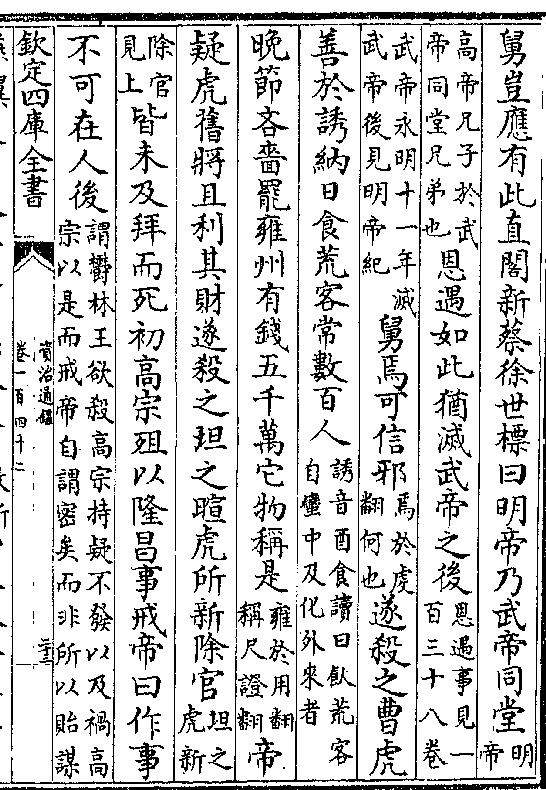 舅豈應有此直閤新蔡徐世標曰明帝乃武帝同堂明帝
高帝兄子於武帝同堂兄弟也恩遇如此猶滅武帝之後恩遇事見一百三十八卷
武帝永明十一年滅武帝後見明帝紀舅焉可信邪焉於虔翻何也遂殺之曹虎
善於誘納日食荒客常數百人誘音酉食讀曰飤荒客自蠻中及化外來者
晚節吝嗇罷雍州有錢五千萬它物稱是雍於用翻稱尺證翻帝
疑虎舊將且利其財遂殺之坦之暄虎所新除官坦之虎新
除官見上皆未及拜而死初高宗殂以隆昌事戒帝曰作事
不可在人後謂鬱林王欲殺高宗持疑不發以及禍高宗以是而戒帝自謂密矣而非所以貽謀
欽定四庫全書
資治通鑑
卷一百四十二
二十三